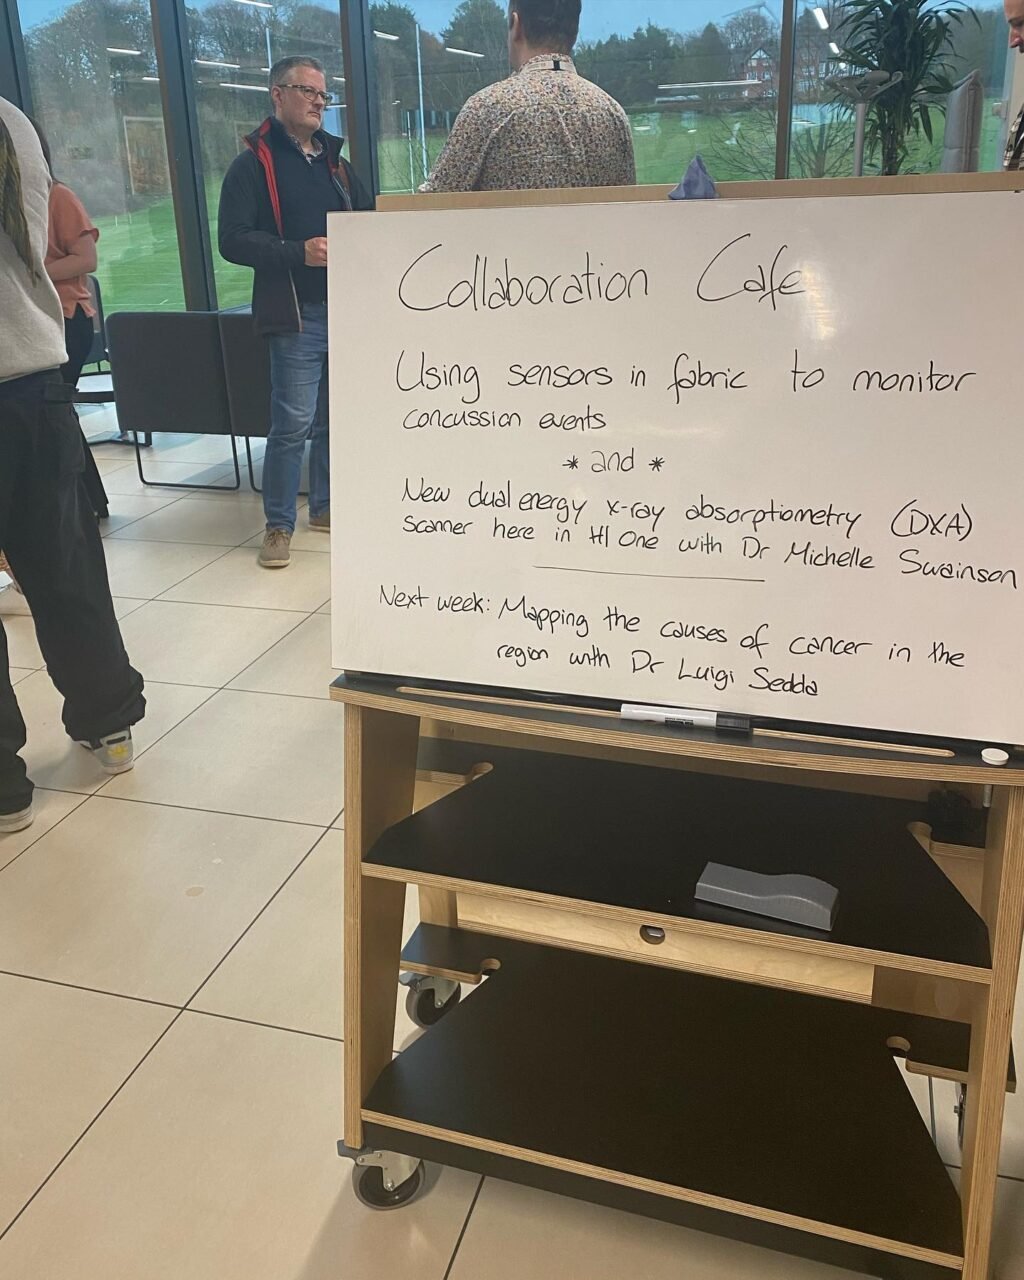 Collaboration Cafe
Using sensors in fabric to monitor
concussion events
* and *
New dual energy x-ray absorptiometry (DXA)
scanner here in HI One with Dr Michelle Swainson
Next week: Mapping the causes of cancer in the
region with Dr Luigi Sedda